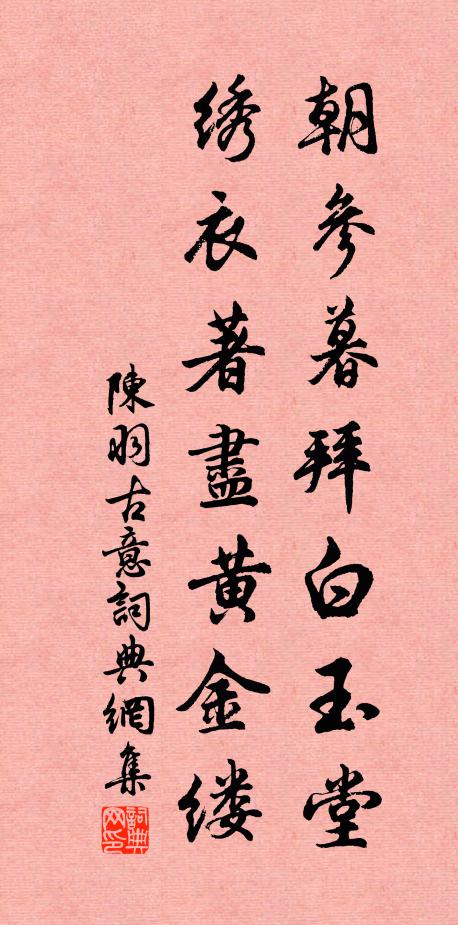 朝參暮拜白玉堂
绣衣著盡黄金缕
陳羽古意詞典網集
詞典网印